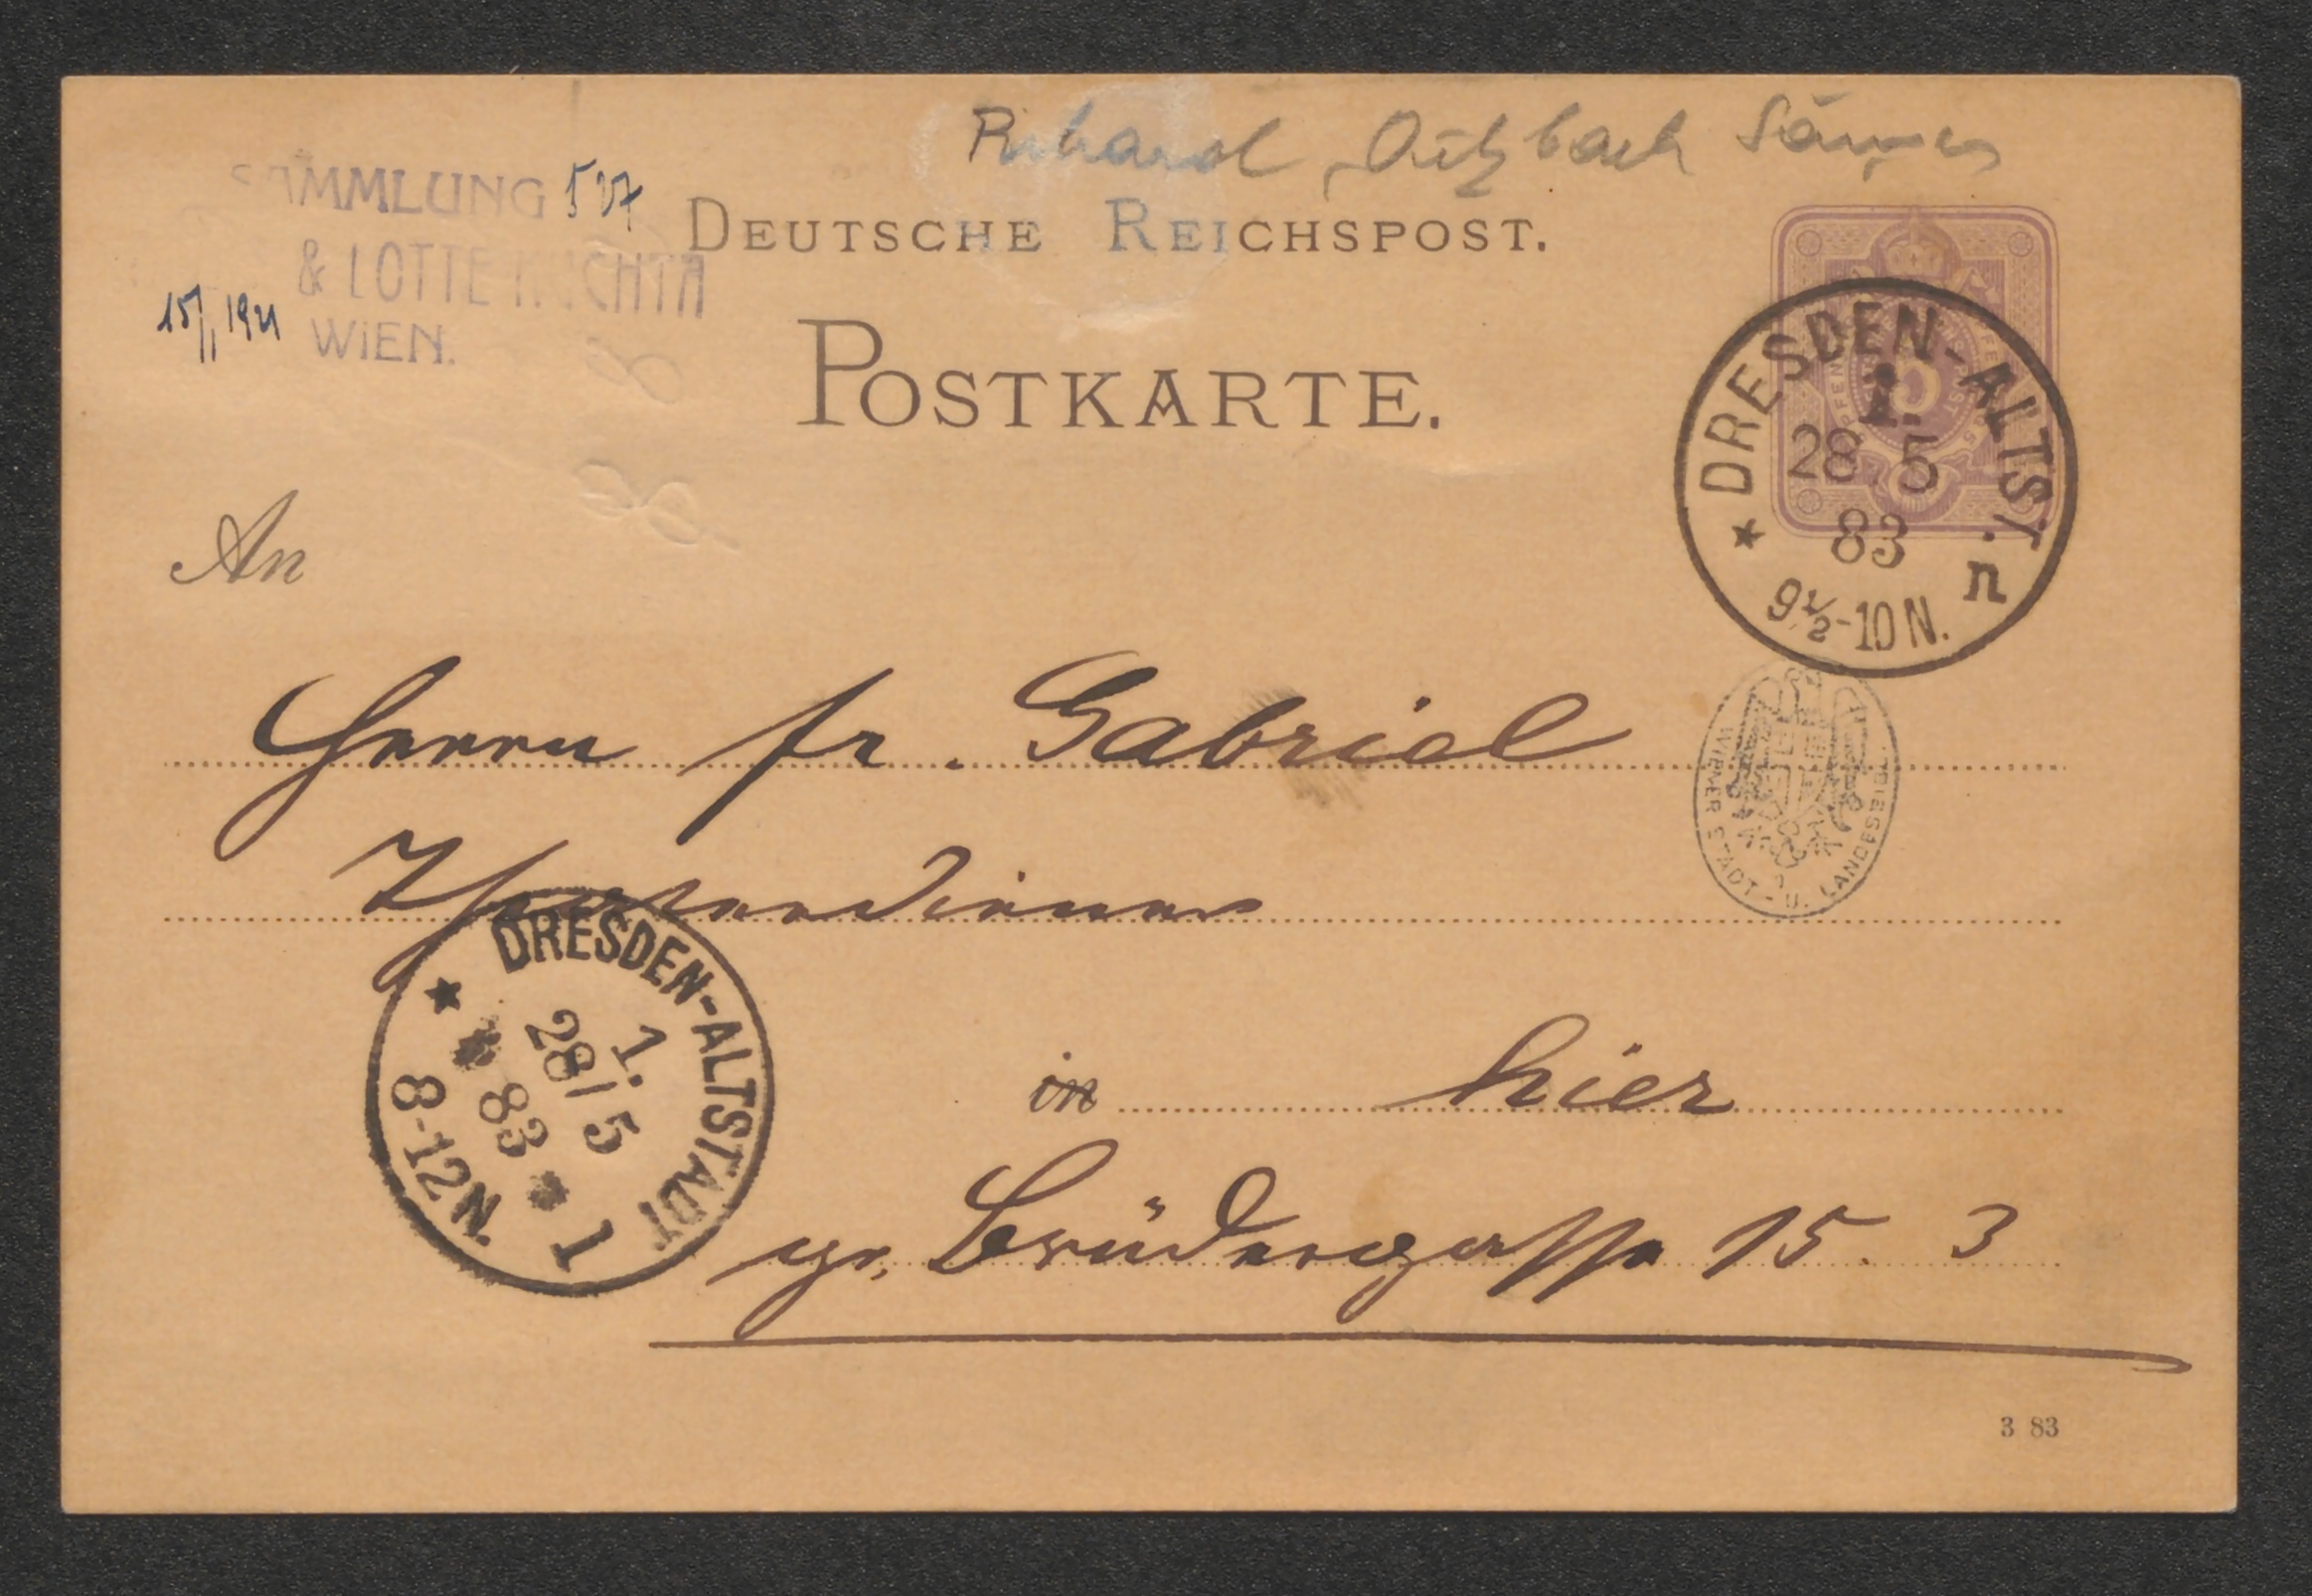 Richard
SAMMLUNG 507
& LOTTE KUCHTA
WIEN.
15/I 1921
DEUTSCHE REICHSPOST.
POSTKARTE.
DRESDEN-ALTST.
1.
28.5
83
9½-10 N.
n
An
Herrn Fr. Gabriel
WIENER STADT- U. LANDESBIBL.
DRESDEN-ALTSTADT
1.
28/5
83
8-12 N.
1
in hier
gr. Brüdergasse 15. 3
3 83